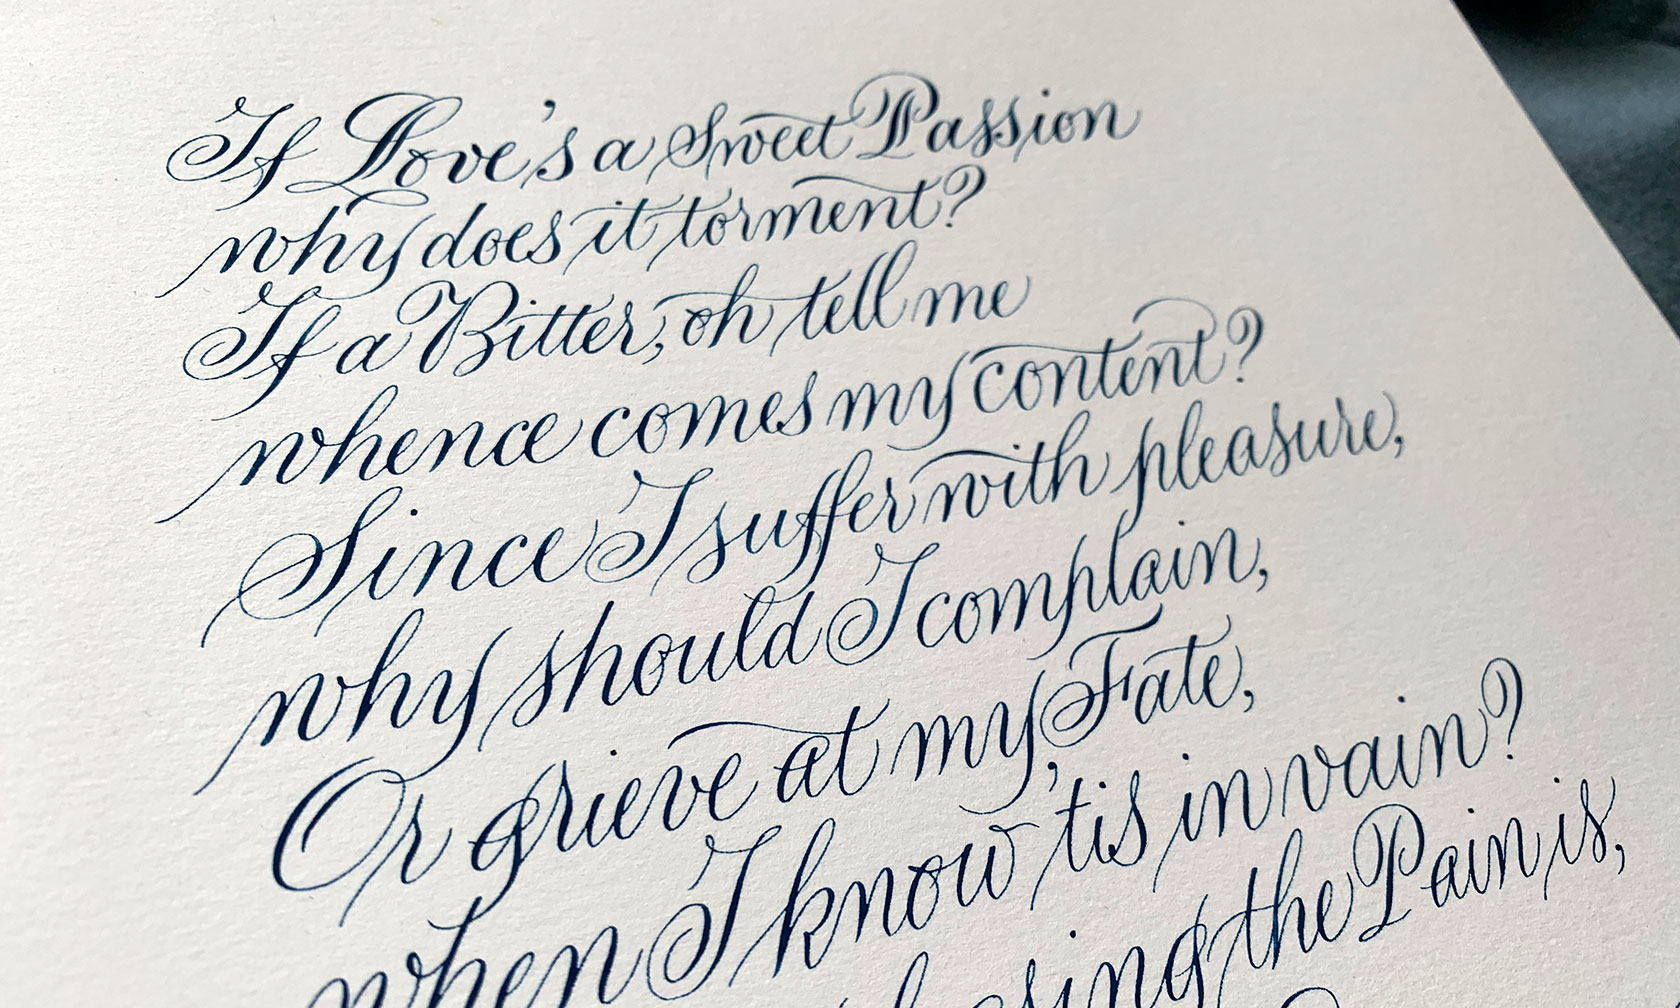 If Love's a Sweet Passion
why does it torment?
If a Bitter, oh tell me
whence comes my content?
Since I suffer with pleasure,
why should I complain,
Or grieve at my Fate,
when I know 'tis in vain?
the Pain is,